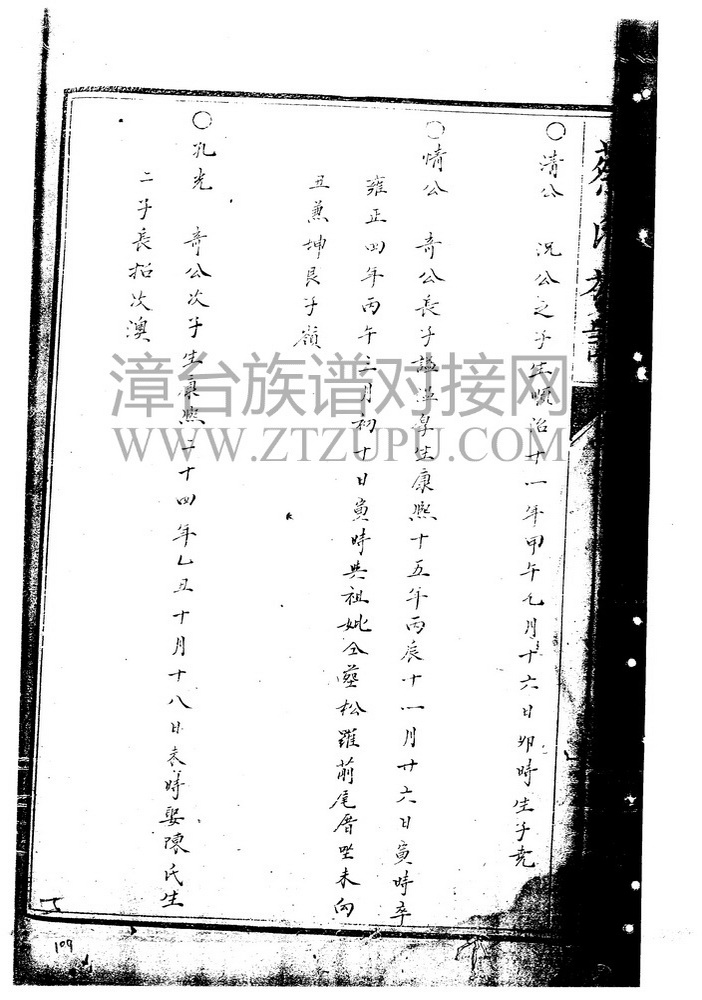 蔡氏族譜
○清公 況公之子生順治十一年甲午七月十六日卯時生子堯
○情公 奇公長子諡溫厚生康熙十五年丙辰十一月廿六日寅時卒
雍正四年丙午三月初十日寅時與祖妣仝塟松羅前尾厝坐未向
丑兼坤艮子嶺
○孔光 奇公次子生康熙二十四年乙丑十月十八日未時娶陳氏生
二子長招次澳
漳台族谱对接网
WWW.ZTZUPU.COM
109